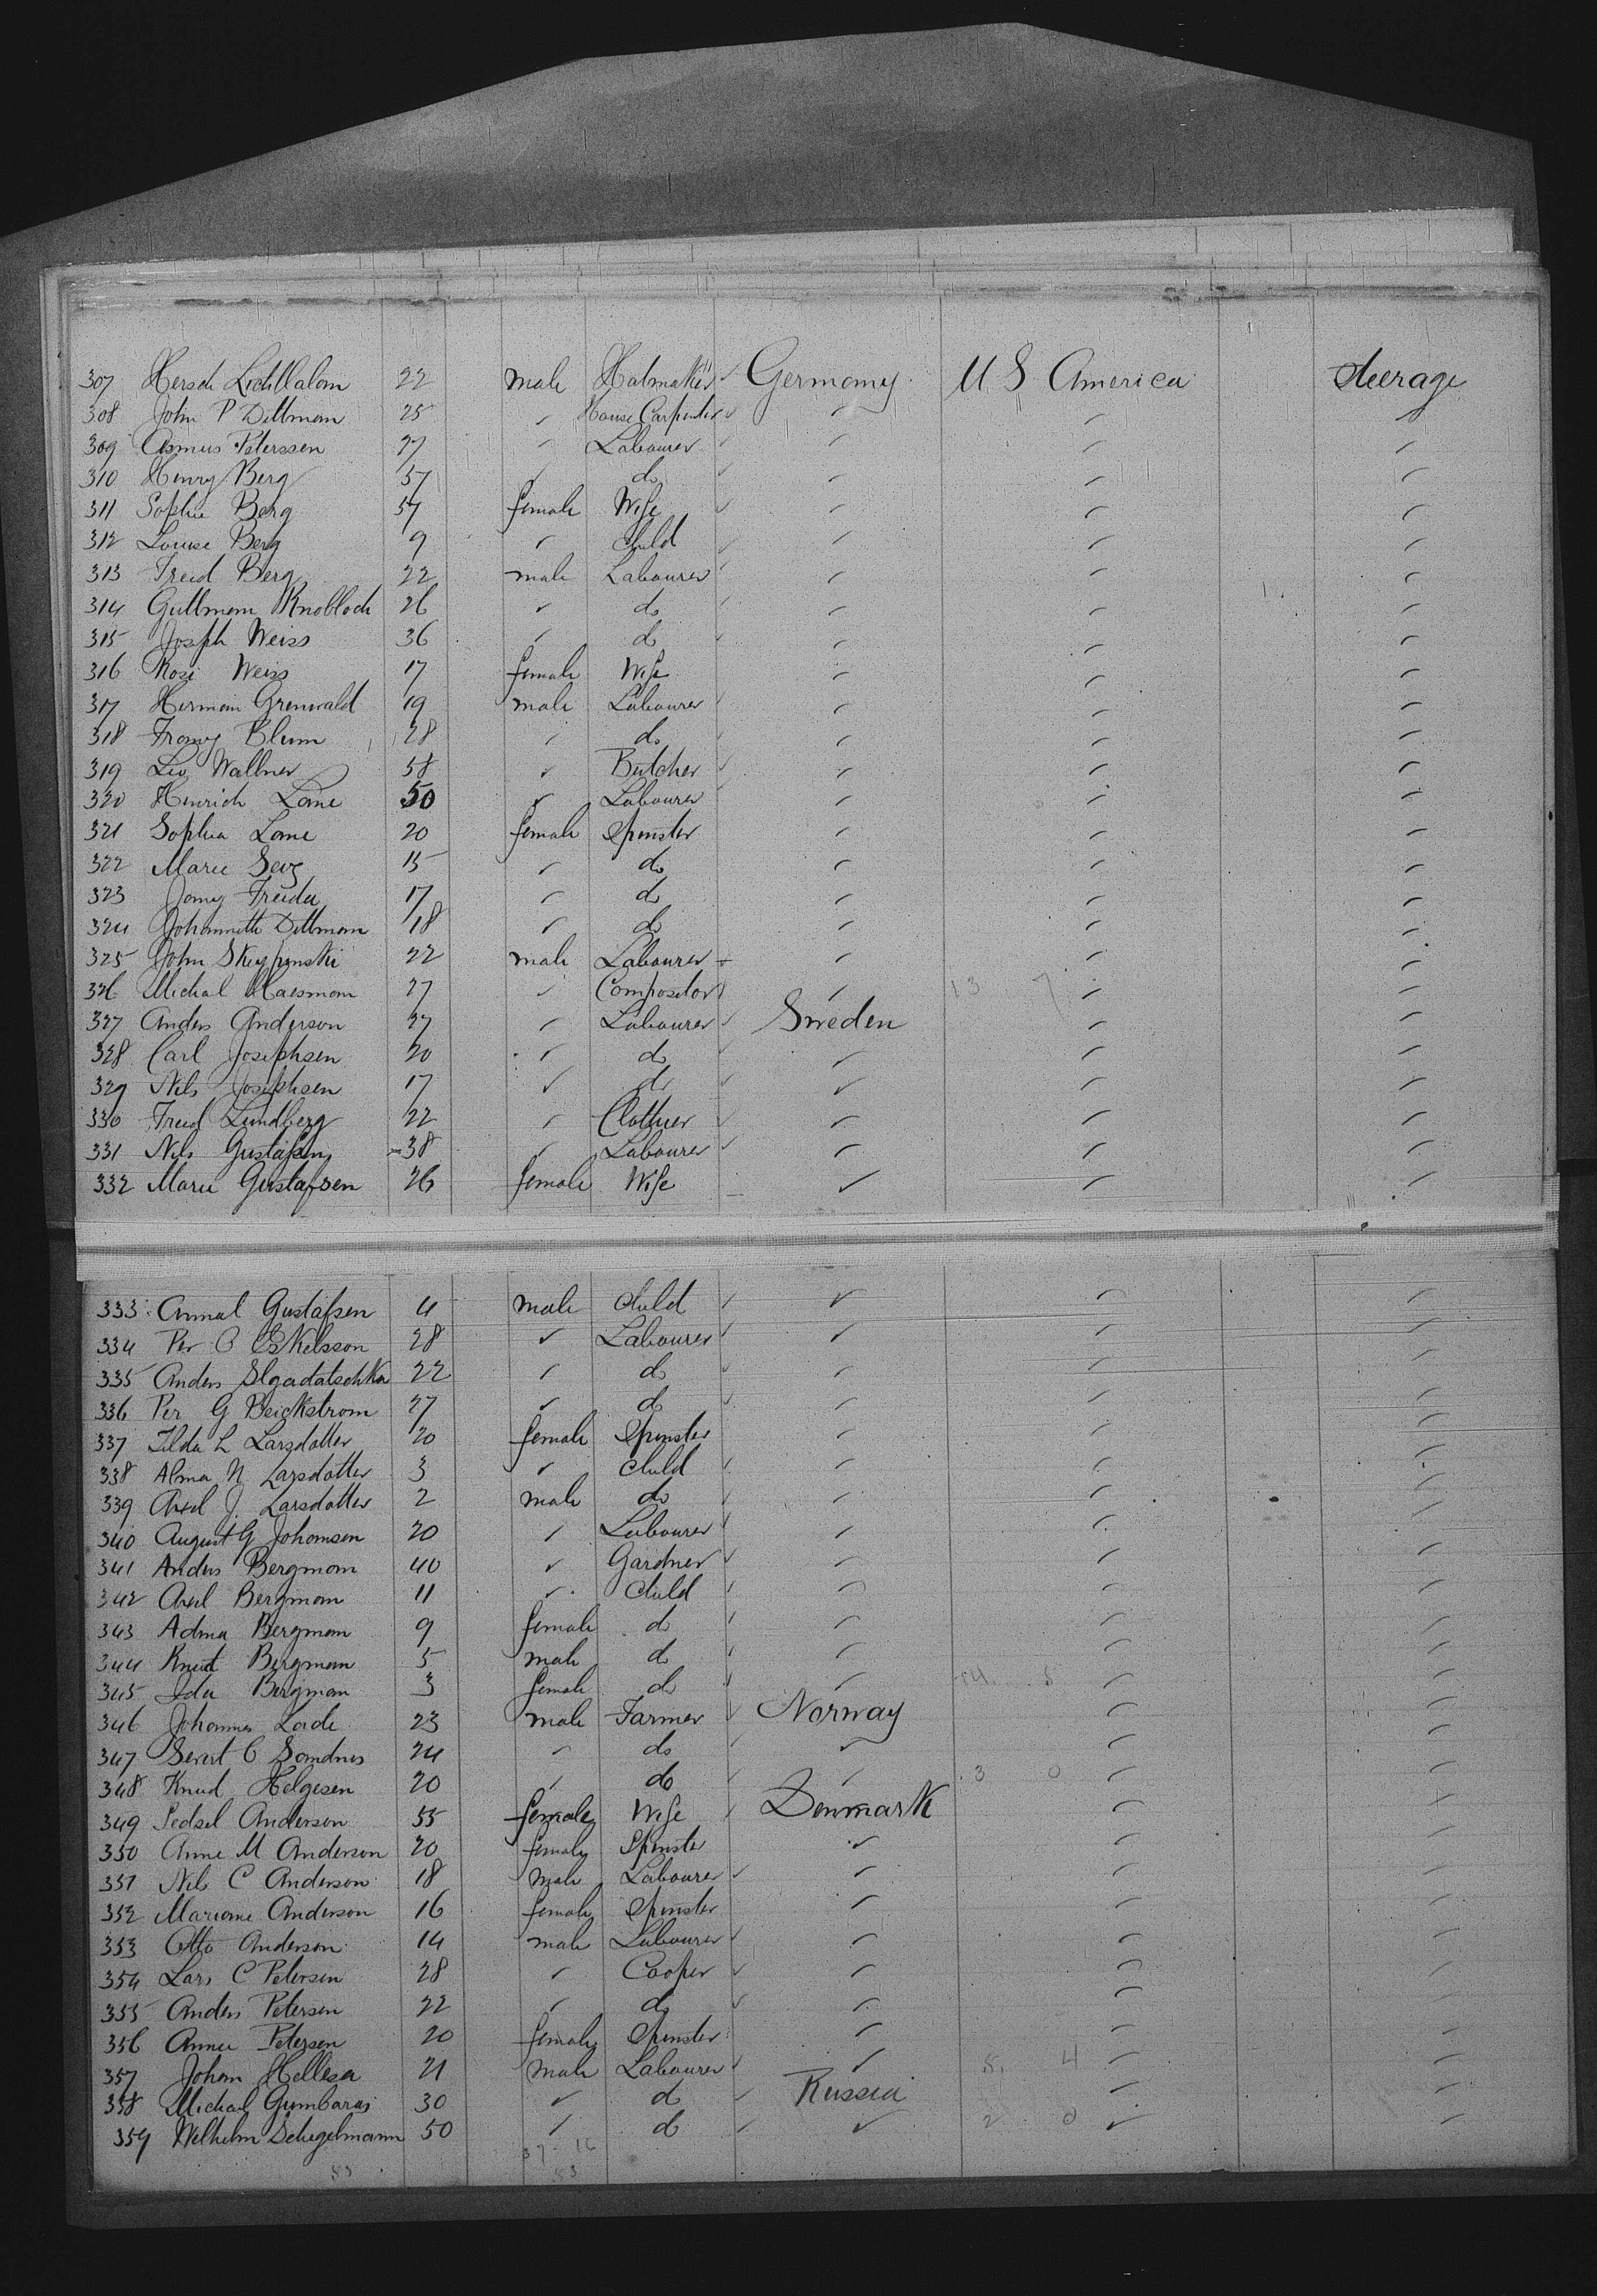 307 Hersch Lichtlalom 22 male Hatmaker ✓ Germany U S America Steerage
308 John P Dittman 25 ✓ House Carpenter ✓ ✓ ✓ ✓
309 Asmus Peterssen 27 ✓ Labourer ✓ ✓ ✓
310 Henry Berg 57 ✓ do ✓ ✓ ✓ ✓
311 Sophie Berg 57 female Wife ✓ ✓ ✓ ✓
312 Louise Berg 9 ✓ Child ✓ ✓ ✓ ✓
313 Fred Berg 22 male Labourer ✓ ✓ ✓ ✓
314 Guttman Knobloch 26 ✓ do ✓ ✓ ✓ ✓
315 Joseph Weiss 36 ✓ do ✓ ✓ ✓ ✓
316 Rosi Weiss 17 female Wife ✓ ✓ ✓
317 Herman Grenwald 19 male Labourer ✓ ✓ ✓ ✓
318 Franz Blum 28 ✓ do ✓ ✓ ✓ ✓
319 Leo Wallner 58 ✓ Butcher ✓ ✓ ✓ ✓
320 Henrich Lane 50 ✓ Labourer ✓ ✓ ✓
321 Sophia Lane 20 female Spinster ✓ ✓ ✓
322 Marie 15 ✓ do ✓ ✓ ✓
323 Jany Freida 17 ✓ do ✓ ✓ ✓
324 Johannette Dittman 18 ✓ do ✓ ✓ ✓
325 John 22 male Labourer ✓ ✓ ✓
326 Michal 27 ✓ Compositor ✓ 13 7 ✓ ✓
327 Anders Anderson 27 ✓ Labourer ✓ Sweden ✓ ✓
328 Carl Josephsen 20 ✓ do ✓ ✓ ✓ ✓
329 Nils Josephsen 17 ✓ do ✓ ✓ ✓ ✓
330 Fred Lundberg 22 ✓ Clothier ✓ ✓ ✓ ✓
331 Nils Gustafsen 38 ✓ Labourer ✓ ✓ ✓ ✓
332 Marie Gustafsen 26 female Wife ✓ ✓ ✓
333 Annal Gustafsen 4 male Child ✓ ✓ ✓ ✓
334 Per O Eskelsson 28 ✓ Labourer ✓ ✓ ✓ ✓
335 Anders 22 ✓ do ✓ ✓ ✓ ✓
336 Per G Beickstrom 27 ✓ do ✓ ✓ ✓ ✓
337 Tilda L Larsdotter 20 female Spinster ✓ ✓ ✓
338 Alma N Larsdotter 3 ✓ Child ✓ ✓ ✓ ✓
339 Axel J. Larsdotter 2 male do ✓ ✓ ✓ ✓
340 August G Johansen 20 ✓ Labourer ✓ ✓ ✓ ✓
341 Anders Bergman 40 ✓ Gardner ✓ ✓ ✓ ✓
342 Axel Bergman 11 ✓ Child ✓ ✓ ✓ ✓
343 Adma Bergman 9 female do ✓ ✓ ✓ ✓
344 Knut Bergman 5 male do ✓ ✓ ✓ ✓
345 Ida Bergman 3 female do ✓ ✓ 14 5 ✓ ✓
346 Johannes Lade 23 male Farmer ✓ Norway ✓ ✓
347 Severt C Sandnes 24 ✓ do ✓ ✓ ✓ ✓
348 Knud Helgesen 20 ✓ do ✓ ✓ 3 0 ✓ ✓
349 Sedsel Anderson 55 female Wife ✓ Denmark ✓ ✓
350 Anne M Anderson 20 female Spinster ✓ ✓ ✓
351 Nils C Anderson 18 male Labourer ✓ ✓ ✓ ✓
352 Mariane Anderson 16 female Spinster ✓ ✓ ✓
353 Otto Anderson 14 male Labourer ✓ ✓ ✓ ✓
354 Lars C Petersen 28 ✓ Cooper ✓ ✓ ✓ ✓
355 Anders Petersen 22 ✓ do ✓ ✓ ✓ ✓
356 Anne Petersen 20 female Spinster ✓ ✓ ✓
357 Johan Hellesa 21 male Labourer ✓ ✓ 8 4 ✓ ✓
358 Michael Gumbaras 30 ✓ do ✓ Russia ✓ ✓
359 Welhelm Schegelmann 50 ✓ do ✓ ✓ 2 0 ✓ ✓
37-16
53 53